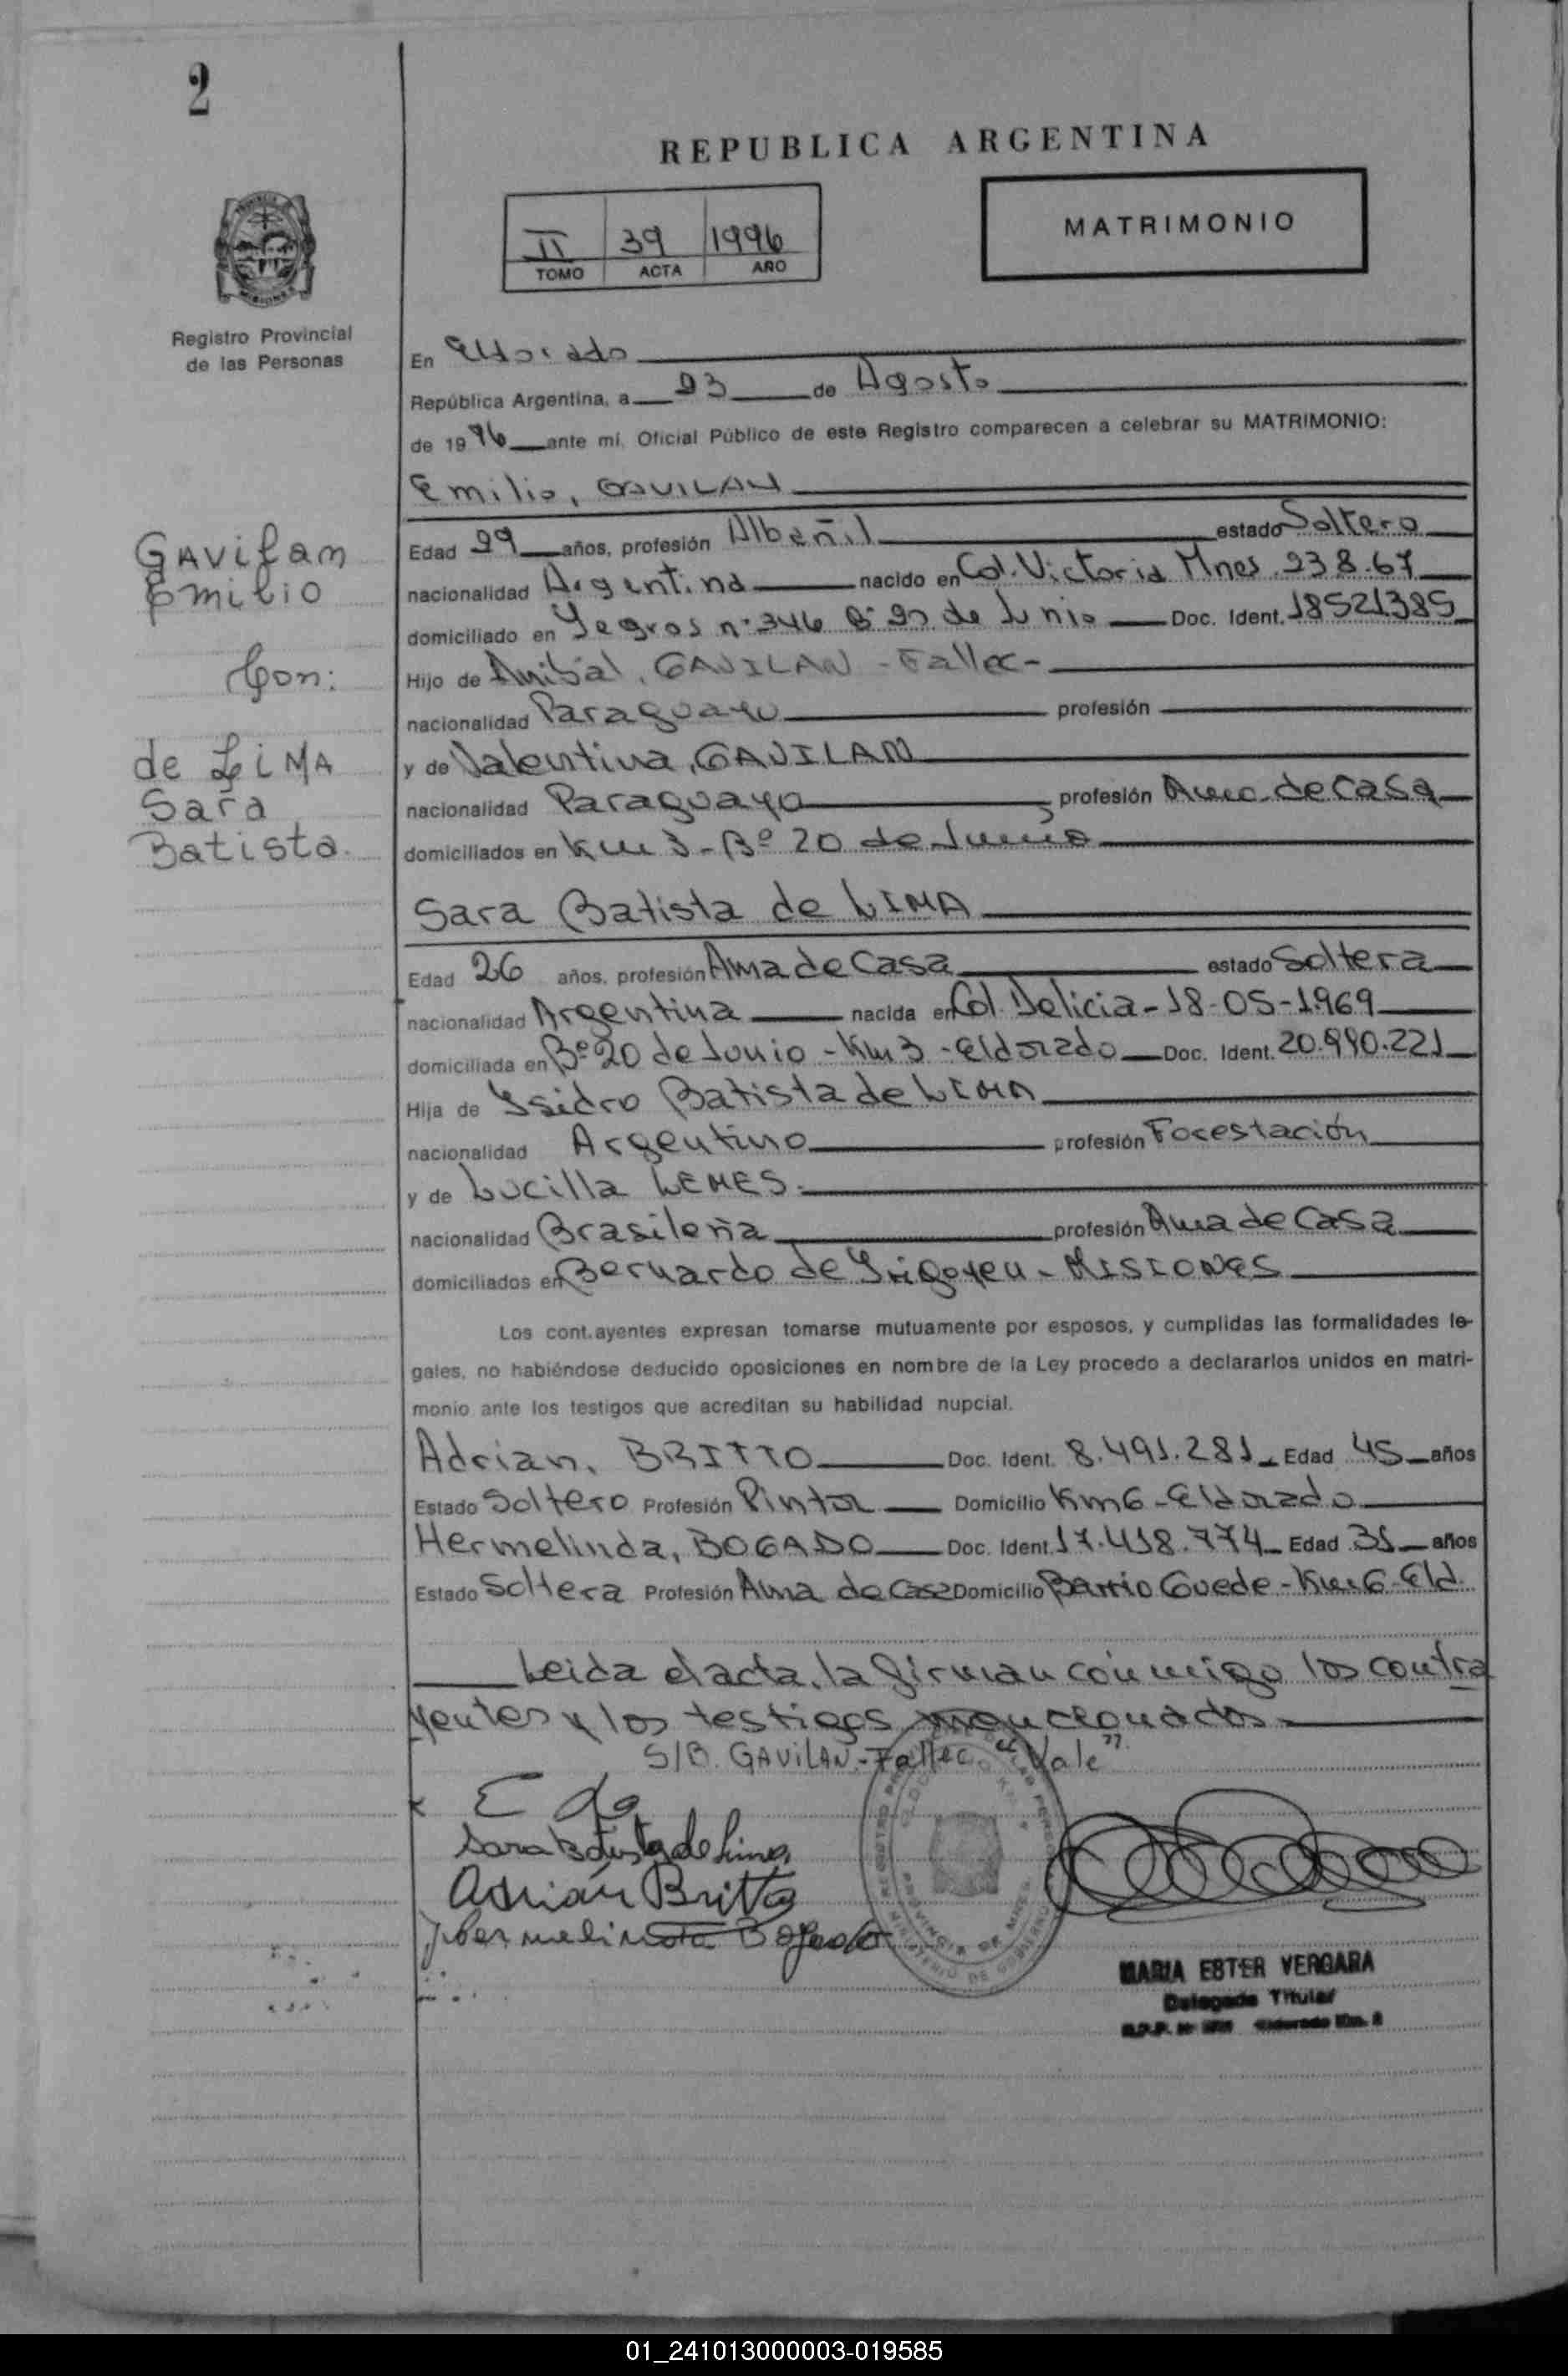 2
REPUBLICA ARGENTINA
II 39 1996
TOMO ACTA AÑO
MATRIMONIO
Registro Provincial
de las Personas
En Eldorado
República Argentina, a 23 de Agosto
de 1996 ante mí, Oficial Público de este Registro comparecen a celebrar su MATRIMONIO:
Emilio, GAVILAN
Gavilan
Emilio
Con:
de LiMA
Sara
Batista.
Edad 29 años, profesión Albañil estado Soltero
nacionalidad Argentina nacido en Col. Victoria Mnes. 23 8.67
domiciliado en Yegros n° 346 B° 20 de Junio Doc. Ident. 18521385
Hijo de Anibal, GAVILAN - Fallec -
nacionalidad Paraguayo profesión
y de Valentina, GAVILAN
nacionalidad Paraguaya profesión Ama de Casa
domiciliados en Km 3 - B° 20 de Junio
Sara Batista de LIMA
Edad 26 años, profesión Ama de Casa estado Soltera
nacionalidad Argentina nacida en Col. Delicia - 18-05-1969
domiciliada en B° 20 de Junio - Km 3 - Eldorado Doc. Ident. 20.990.221
Hija de Ysidro Batista de LIMA
nacionalidad Argentino profesión Forestación
y de Lucilla LEMES.
nacionalidad Brasileña profesión Ama de Casa
domiciliados en Bernardo de Yrigoyen - MISIONES
Los contrayentes expresan tomarse mutuamente por esposos, y cumplidas las formalidades le-
gales, no habiéndose deducido oposiciones en nombre de la Ley procedo a declararlos unidos en matri-
monio ante los testigos que acreditan su habilidad nupcial.
Adrian, BRITTO Doc. Ident. 8.491.281 Edad 45 años
Estado Soltero Profesión Pintor Domicilio Km 6 - Eldorado
Hermelinda, BOGADO Doc. Ident. 17.418.774 Edad 31 años
Estado Soltera Profesión Ama de Casa Domicilio Barrio Guede - Km 6 - Eld.
Leida el acta, la firman conmigo los contra
yentes y los testigos mencionados
S/B. GAVILAN - Fallec "Vale"
Sara Batista de Lima
Adrián Britto
Hermelinda Bogado
MARIA ESTER VERGARA
Delegada Titular
01_241013000003-019585